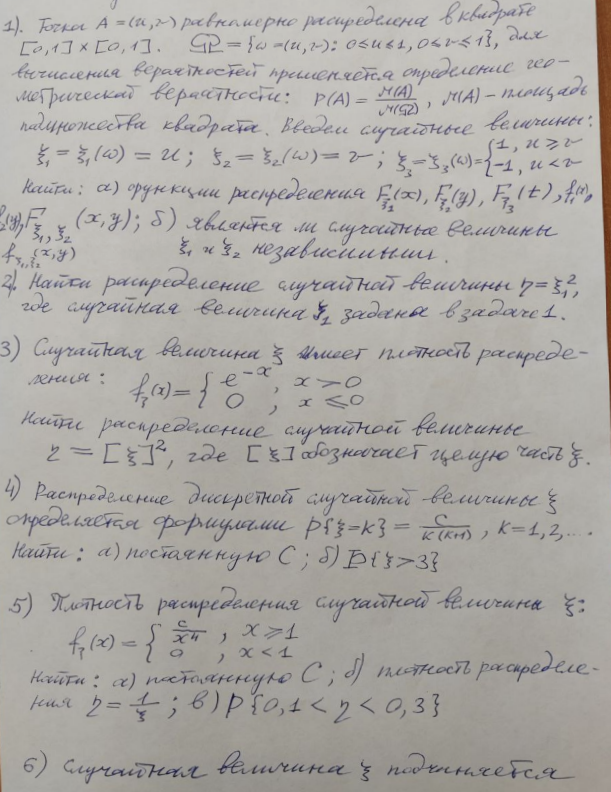 1). Точка A = (u, v) равномерно распределена в квадрате
[0,1] × [0,1]. Ω = {ω = (u, v): 0 ≤ u ≤ 1, 0 ≤ v ≤ 1}, для
вычисления вероятностей применяется определение гео-
метрической вероятности: P(A) = μ(A)/μ(Ω), μ(A) – площадь
подмножества квадрата. Введем случайные величины:
ξ₁ = ξ₁(ω) = u; ξ₂ = ξ₂(ω) = v; ξ₃ = ξ₃(ω) = { 1, u ≥ v
-1, u < v
Найти: а) функции распределения F_ξ₁(x), F_ξ₂(y), F_ξ₃(t), f₁(x),
f₂(y), F_ξ₁,ξ₂ (x, y); б) являются ли случайные величины
f_ξ₁,ξ₂(x, y) ξ₁ и ξ₂ независимыми.
2). Найти распределение случайной величины η = ξ₁²,
где случайная величина ξ₁ задана в задаче 1.
3) Случайная величина ξ имеет плотность распреде-
ления: f_ξ(x) = { e^{-x}, x > 0
0, x ≤ 0
Найти распределение случайной величины
η = [ξ]², где [ξ] обозначает целую часть ξ.
4) Распределение дискретной случайной величины ξ
определяется формулами P{ξ = k} = C/k(k+1), k = 1, 2, ....
Найти: а) постоянную C; б) P{ξ > 3}
5) Плотность распределения случайной величины ξ:
f_ξ(x) = { C/x⁴, x ≥ 1
0, x < 1
Найти: а) постоянную C; б) плотность распределе-
ния η = 1/ξ; в) P{0,1 < η < 0,3}
6) Случайная величина ξ подчиняется